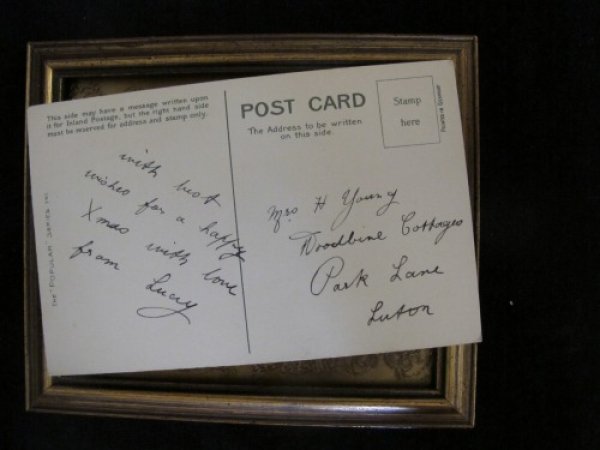 This side may have a message written upon
it for Inland Postage, but the right hand side
must be reserved for address and stamp only.
with best
wishes for a happy
Xmas with love
from Lucy
THE "POPULAR" SERIES
POST CARD
The Address to be written
on this side.
Stamp
here
Mrs H Young
Woodbine Cottages
Park Lane
Luton